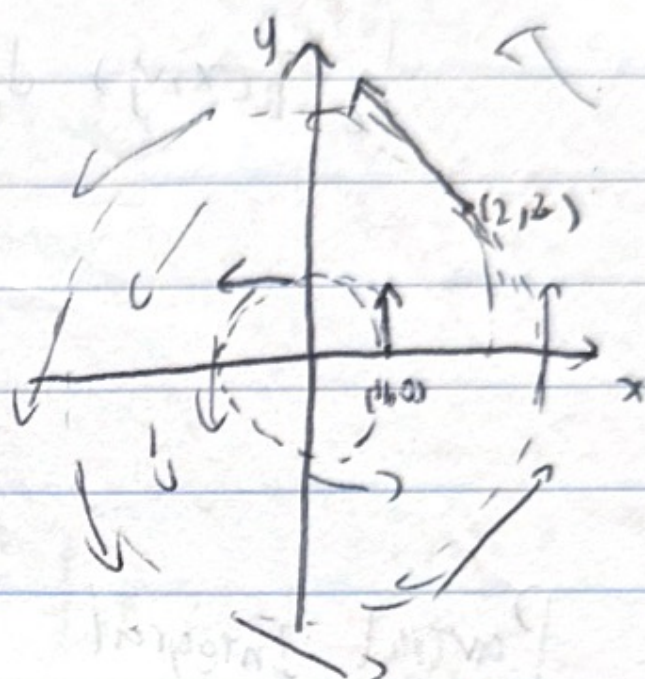 y
(2,2)
(1,0)
x